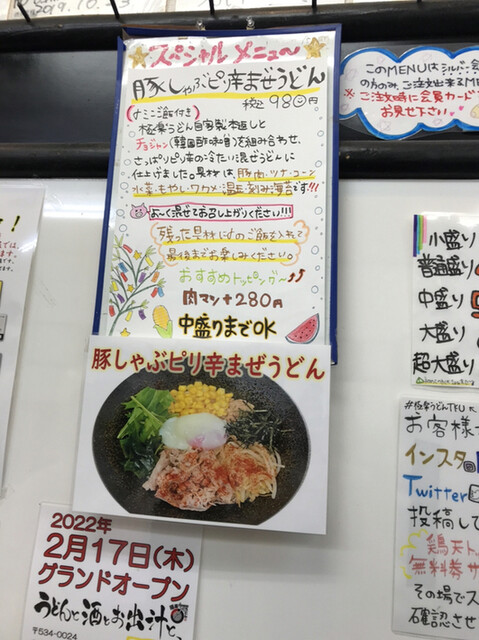 2019.10.23
スペシャルメニュー
豚しゃぶピリ辛まぜうどん
税込 980円
(ミニご飯付き)
極楽うどん自家製本返しと
チョジャン(韓国酢味噌)を組み合わせ、
さっぱりピリ辛の冷たい混ぜうどんに
仕上げました。具材は、豚肉・ツナ・コーン
水菜・もやし・ワカメ・温玉・刻み海苔です!!!
よ〜く混ぜてお召し上がりください!!!
残った具材にのご飯を入れて
最後までお楽しみください。
おすすめトッピング〜
肉マシ+280円
中盛りまでOK
豚しゃぶピリ辛まぜうどん
2022年
2月17日(木)
グランドオープン
うどんと酒とお出汁と、
〒534-0024
このMENUは シルバー会
の方のみ、ご注文出来るME
ご注文時に会員カード
お見せ下さい
小盛り
普通盛り
中盛り
大盛り
超大盛り
#極楽うどんTFU
お客様
インスタ
Twitter
投稿して
鶏天ト
無料券サ
その場でス
確認させ